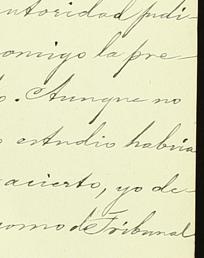 utoridad judi-
conmigo la pre-
o. Aunque no
estudio habria
acierto, yo de-
como de Tribunal